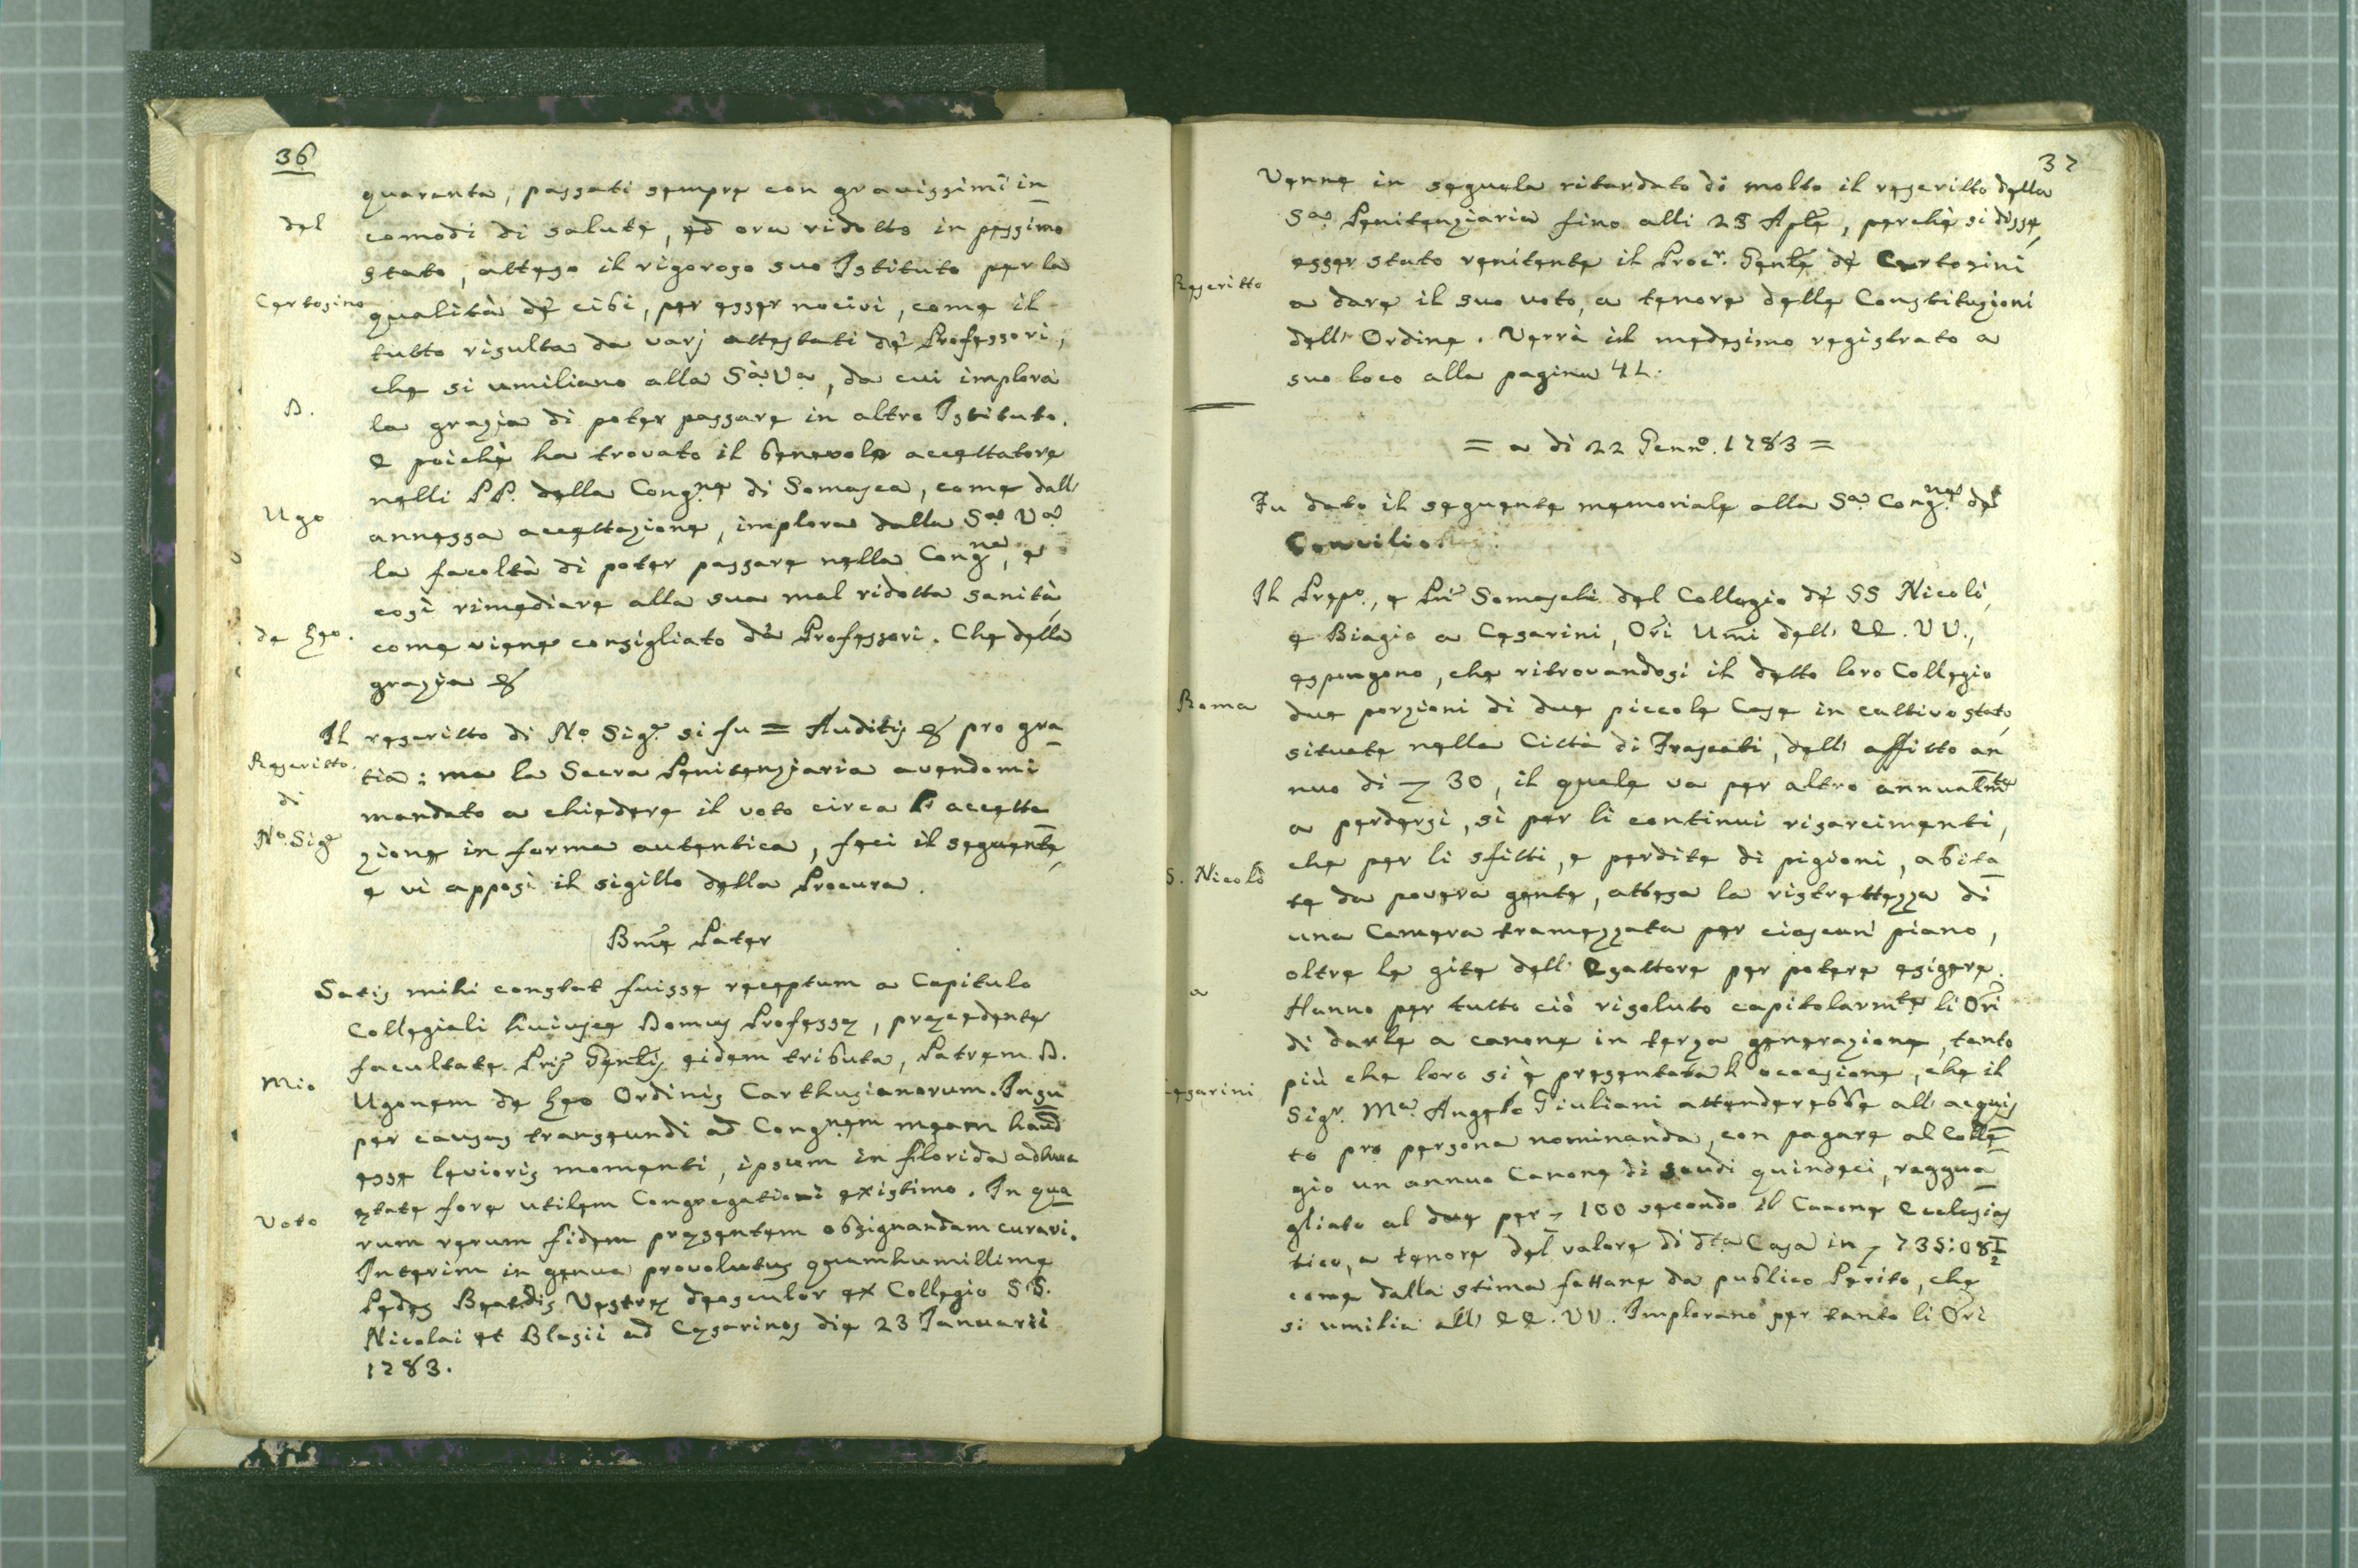 36
quaranta, passati sempre con gravissimi in
del
comodi di salute, ed ora ridotto in pessimo
stato, atteso il rigoroso suo Istituto per la
Certosino
qualità de' cibi, per esser nocivi, come il
tutto risulta da varj attestati de' Professori,
che si umiliano alla Sa. Va., da cui implora
D.
la grazia di poter passare in altro Istituto.
E poichè ha trovato il benevolo accettatore
nelli PP. della Cong.ne di Somasca, come dall'
Ugo
annessa accettazione, implora dalla Sa. Va.
la facoltà di poter passare nella Cong.ne, e
così rimediare alla sua mal ridotta sanità,
de Leo.
come viene consigliato da' Professori. Che della
grazia &
Il rescritto di No. Sigr. si fu = Auditis & pro gra
Rescritto
tia: ma la Sacra Penitenziaria avendomi
di
mandato a chiedere il voto circa l' accetta
No. Sigr
zione in forma autentica, feci il seguente,
e vi apposi il sigillo della Procura.
Bme Pater
Satis mihi constat fuisse receptum a Capitulo
Collegiali huiusce Domus Professę, pręcedente
facultate Pris Genlis eidem tributa, Patrem D.
Mio
Ugonem de Leo Ordinis Carthusianorum. Insu
per causas transeundi ad Congnem meam haud
esse levioris momenti, ipsum in florida adhuc
ętate fore utilem Congregationi existimo. In qua
Voto
rum rerum fidem pręsentem obsignandam curavi.
Interim in genua provolutus quamhumillime
Pedes Beatdis Vestrę deosculor ex Collegio SS.
Nicolai et Blasii ad Cęsarinos die 23 Ianuarii
1783.
37
Venne in seguela ritardato di molto il rescritto della
Sa. Penitenziaria fino alli 28 Aple, perchè si disse,
Rescritto
esser stato renitente il Procr. Genle de' Certosini
a dare il suo voto, a tenore delle Constituzioni
dell' Ordine. Verrà il medesimo registrato a
suo loco alla pagina 41.
= a dì 22 Genno. 1783 =
Fu dato il seguente memoriale alla Sa. Cong.ne del
Concilio
Il Prepo., e Pri Somaschi del Collegio de' SS Nicolò,
e Biagio a Cesarini, Ori Umi dell' EE. VV.,
espongono, che ritrovandosi il detto loro Collegio
Roma
due porzioni di due piccole Case in cattivo stato,
situate nella Città di Frascati, dell' affitto an
nuo di 30, il quale va per altro annualmte
a perdersi, sì per li continui risarcimenti,
che per li sfitti, e perdite di pigioni, abita
S. Nicolò
te da povera gente, attesa la ristrettezza di
una Camera tramezzata per ciascun piano,
oltre le gite dell' Esattore per potere esigere.
a
Hanno per tutto ciò risoluto capitolarmte li Ori
di darle a canone in terza generazione, tanto
più che loro si è presentata l' occasione, che il
Cesarini
Sigr. Ma. Angelo Giuliani attenderebbe all' acquis
to pro persona nominanda, con pagare al Colle
gio un annuo Canone di scudi quindeci, raggua
gliato al due per 100 secondo il Canone Ecclesias
tico, a tenore del valore di dta Casa in 735:08½
come dalla stima fattane da publico Perito, che
si umilia all' EE. VV. Implorano per tanto li Ori